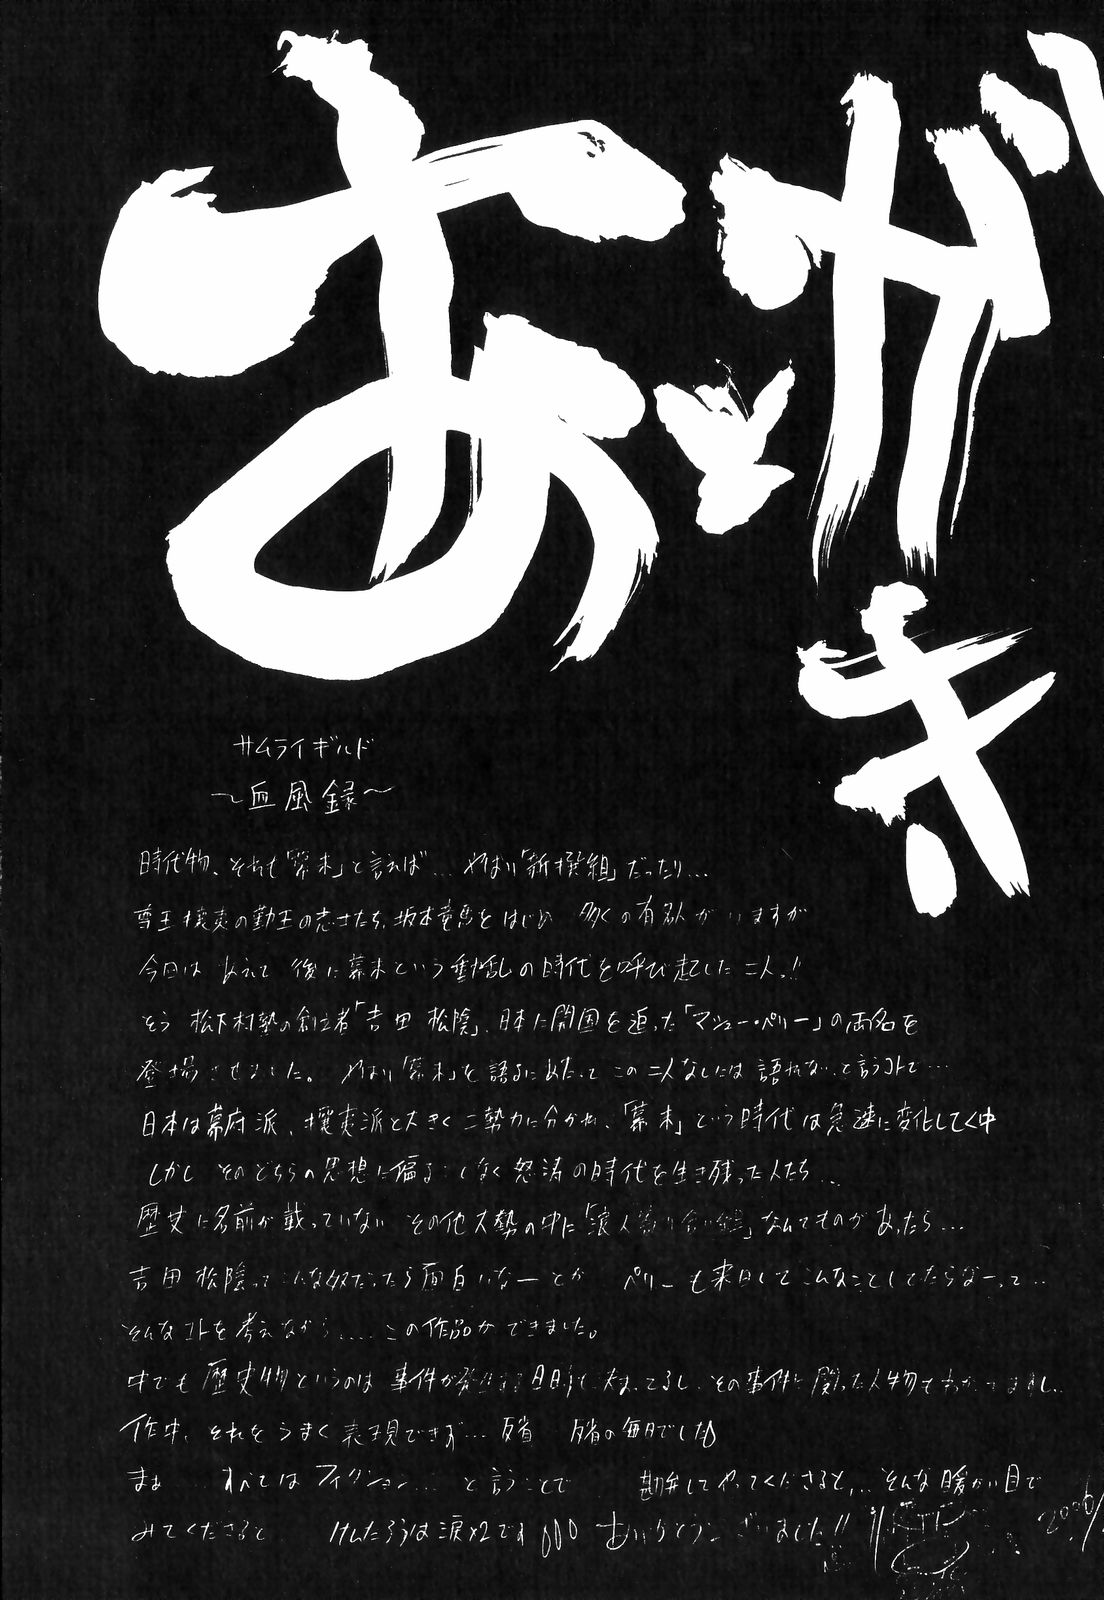 あとがき
サムライギルド
～血風録～
時代物、それも「幕末」と言えば… やはり「新撰組」だったり…
尊王攘夷の勤王の志士たち、坂本竜馬をはじめ 多くの有名人がいますが
今回は あえて 後に幕末という動乱の時代を呼び起した二人っ!!
そう 松下村塾の創立者「吉田 松陰」、日本に開国を迫った「マシュー・ペリー」の両名を
登場させました。 やはり「幕末」を語るにあたって この二人なしには 語れないっと言うコトで…
日本は幕府派、攘夷派と大きく二勢力に分かれ、「幕末」という時代は急速に変化してく中
しかし そのどちらの思想に偏ることなく 怒涛の時代を生き残った人たち…
歴史に名前が載っていない その他大勢の中に「浪人寄り合い組」なんてものがあったら…
吉田 松陰ってこんな奴だったら面白いなーとか ペリーも来日してこんなことしてたらなーって‥
そんなコトを考えながら…. この作品ができました。
中でも歴史物というのは 事件が発生する日時も決まってるし、その事件に関った人物も
作中、それをうまく表現できず… 反省 反省の毎日でした
まぁ… すべてはフィクション… と言うことで 勘弁してやってくださると… そんな暖かい目で
みてくださると けんたろうは涙×2です ありがとうございました!!
2006/